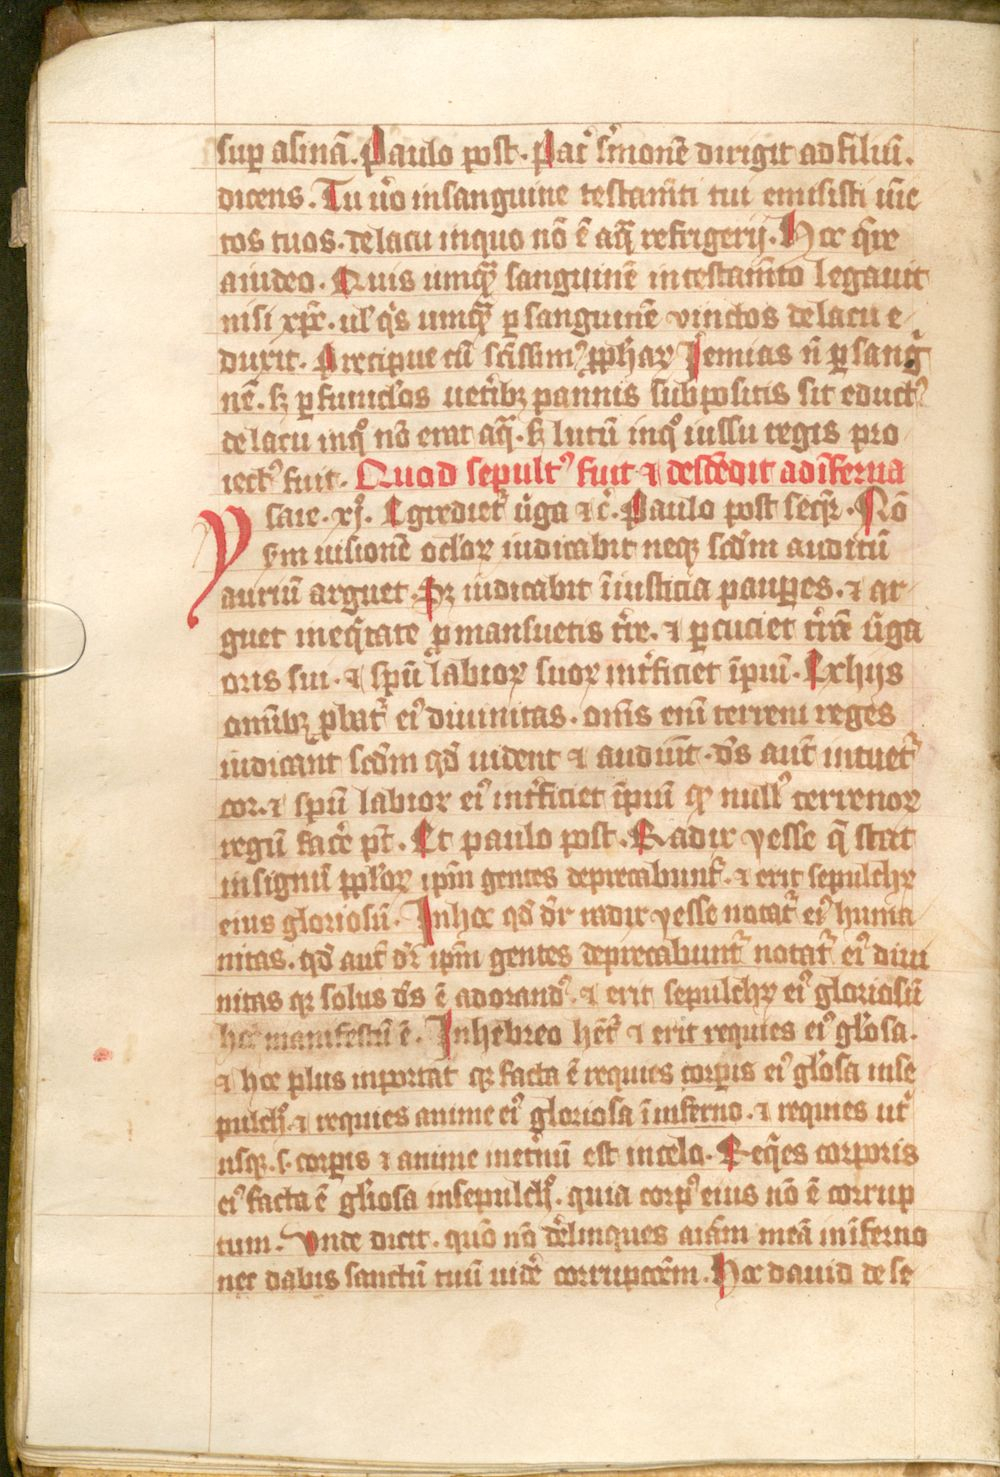 sup̱ asinā. Paulo post. Pat᷑ s᷑monē dirigit ad filiū.
dicens. Tu u᷑o in sanguine testam̄ti tui emisisti uīc
tos tuos. de lacu in quo nō ē aq̄ refrigerij. Hoc q̄re
a iudeo. Quis umq̄ꝫ sanguinē in testam̄to legauit
nisi xp̄c. ul᷑ qͥs umq̄ꝫ ꝑ sanguinē vinctos de lacu e
duxit. Precipue cū sc̄issim᷒ ꝓphaꝝ Iemias n̄ ꝑ sang̃
nē. sꝫ ꝑ funiclōs uet᷑ibꝫ pannis subpositis sit educt᷒
de lacu in qͦ nō erat aq̄. sꝫ lutū in qͦ iussu regis pro
iect᷒ fuit. Quod sepult᷒ fuit ⁊ desc̄edit ad īferna
Ysaie. xj. Egrediet᷑ u᷑ga ⁊ c̄. Paulo post seq̄r. Nō
s̄m uisionē oclōꝝ iudicabit neqꝫ sc̄dm auditū
auriū arguet. Sꝫ iudicabit ī iusticia pauꝑes. ⁊ ar
guet in eq̄tate ꝓ mansuetis t᷑re. ⁊ ꝑcuciet t᷑rā u᷑ga
oris sui. ⁊ sp̄u labioꝝ suoꝝ int᷑ficiet īpiū. Ex hijs
om̄ibꝫ ꝓbat᷑ ei᷒ diuinitas. om̄s eni᷑ terreni reges
iudicant sc̄dm qd̄ uident ⁊ audiūt. dn̄s aut̄ intuet᷑
cor. ⁊ sp̄u labioꝝ ei᷒ int᷑ficiet īpiū qꝫ null᷒ terrenoꝝ
regū fac᷑e pt̄. Et paulo post. Radix yesse q̄ stat
in signū ppl̄oꝝ ip̄m gentes deprecabunt᷑. ⁊ erit sepulchꝝ
eius gloriosū. In hoc qd̄ dr̄ radix yesse notat᷑ ei᷒ huma
nitas. qd̄ aut̄ dr̄ ip̄m gentes deprecabunt᷑ notat᷑ ei᷒ diui
nitas qꝛ solus ds̄ ē adorand᷒. ⁊ erit sepulchꝝ ei᷒ gloriosū
hoc manifestū ē. In hebreo het᷑ ⁊ erit requies ei᷒ gl̄osa.
⁊ hoc plus inportat qꝛ facta ē requies corꝑis ei᷒ gl̄osa in se
pulch᷑. ⁊ requies anime ei᷒ gloriosa ī inferno. ⁊ requies ut᷑
usqꝫ. s. corꝑis ⁊ anime met᷑nū est in celo. Req̄es corporis
ei᷒ facta ē gl᷑iosa in sepulch᷑. quia corp᷒ eius nō ē corrup
tum. Vnde dicit. quō nō d᷑elinques aiā m̄ meā in īferno
nec dabis sanctū tuū uid᷑e corrupcōem. Hoc dauid de se